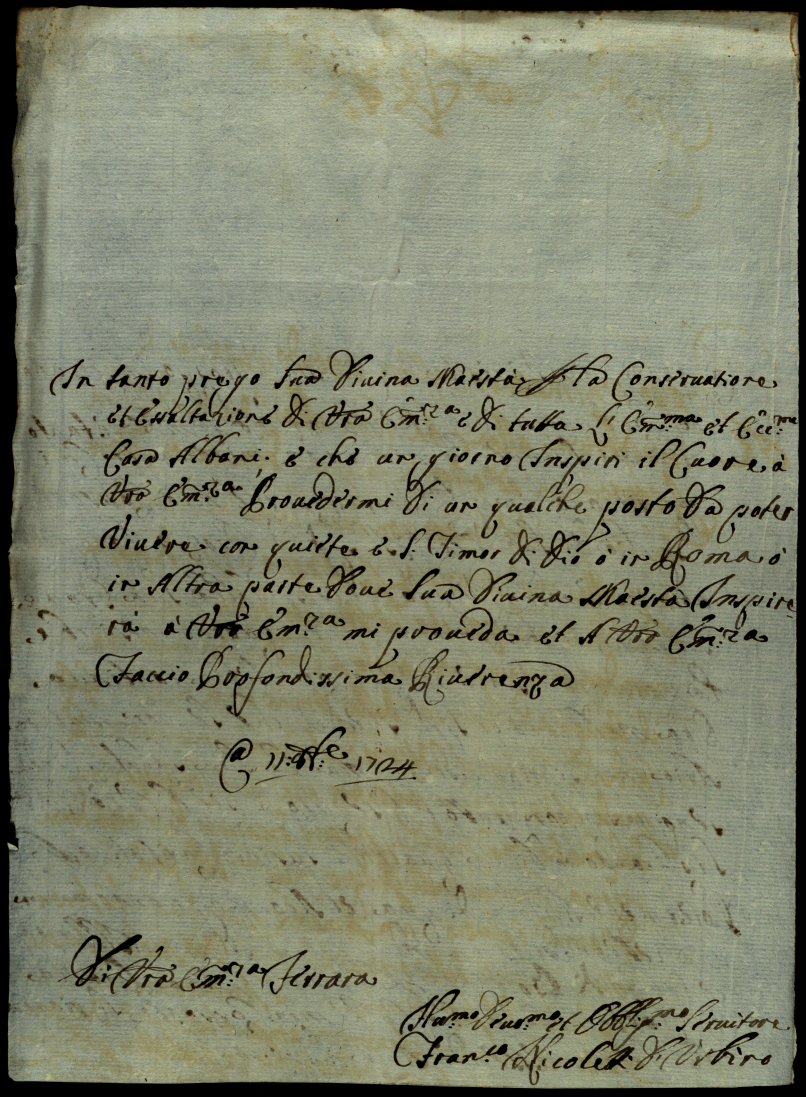 In tanto prego Sua Diuina Maestà la Conseruatione
et Essaltazione di Vr̃a Em:za e di tutta l' Em:ma et Ecc:ma
Casa Albani, e che un giorno Inspiri il Cuore à
Vr̃a Em:za Prouedermi di un qualche posto da poter
Viuere con quiete e S. Timor di Dio ò in Roma ò
in Altra parte doue Sua Diuina Maestà Inspire=
rà à Vr̃a Em:za mi proueda et A Vr̃a Em:za
Faccio Profondissima Riuerenza
11: 1724
Di Vr̃a Em:za Ferrara
Hum:mo Deuo:mo et Obblig:mo Seruitore
Fran:co Nicoleti d' Vrbino